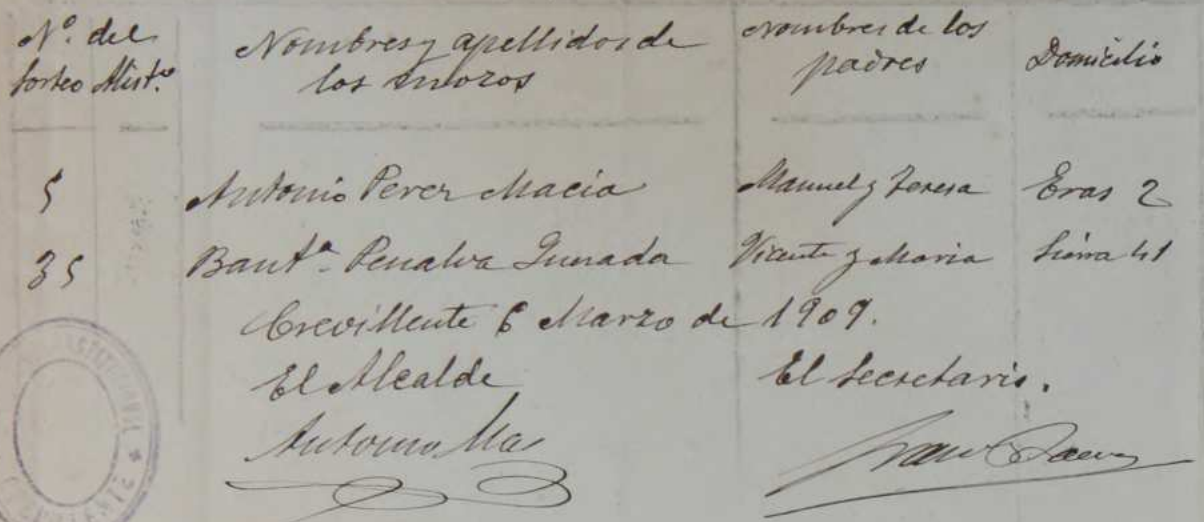 Nº. del sorteo Alist.º
Nombres y apellidos de los mozos
Nombres de los padres
Domicilio
5 Antonio Perez Macia Manuel y Teresa Eras 2
35 Baut.ª Penalva Quesada Vicente y Maria Sierra 41
Crevillente 6 Marzo de 1909.
El Alcalde El Secretario.
Antonio Mas